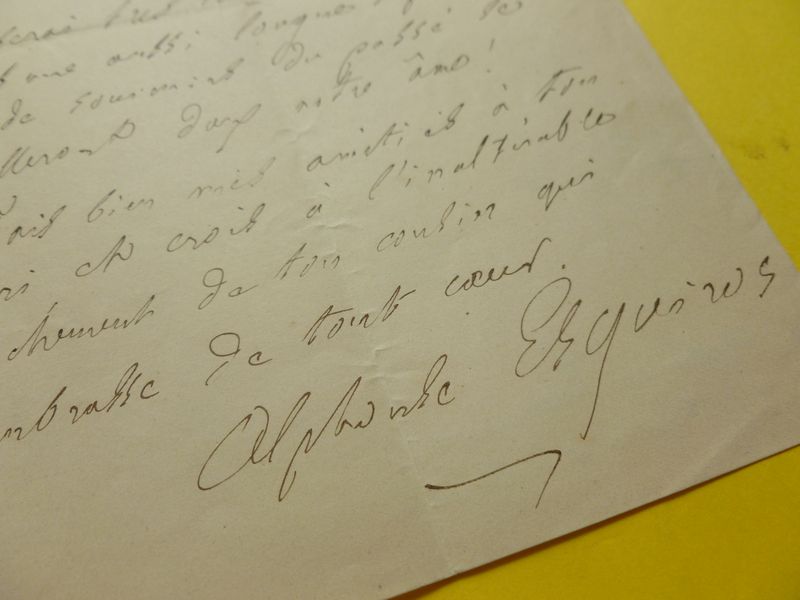 une aussi longue
de souvenirs du passé se
dans notre âme!
ais bien mes amitiés à ton
ri et crois à l'inaltérable
chement de ton cousin qui
mbrasse de tout cœur.
Alphonse Esquiros